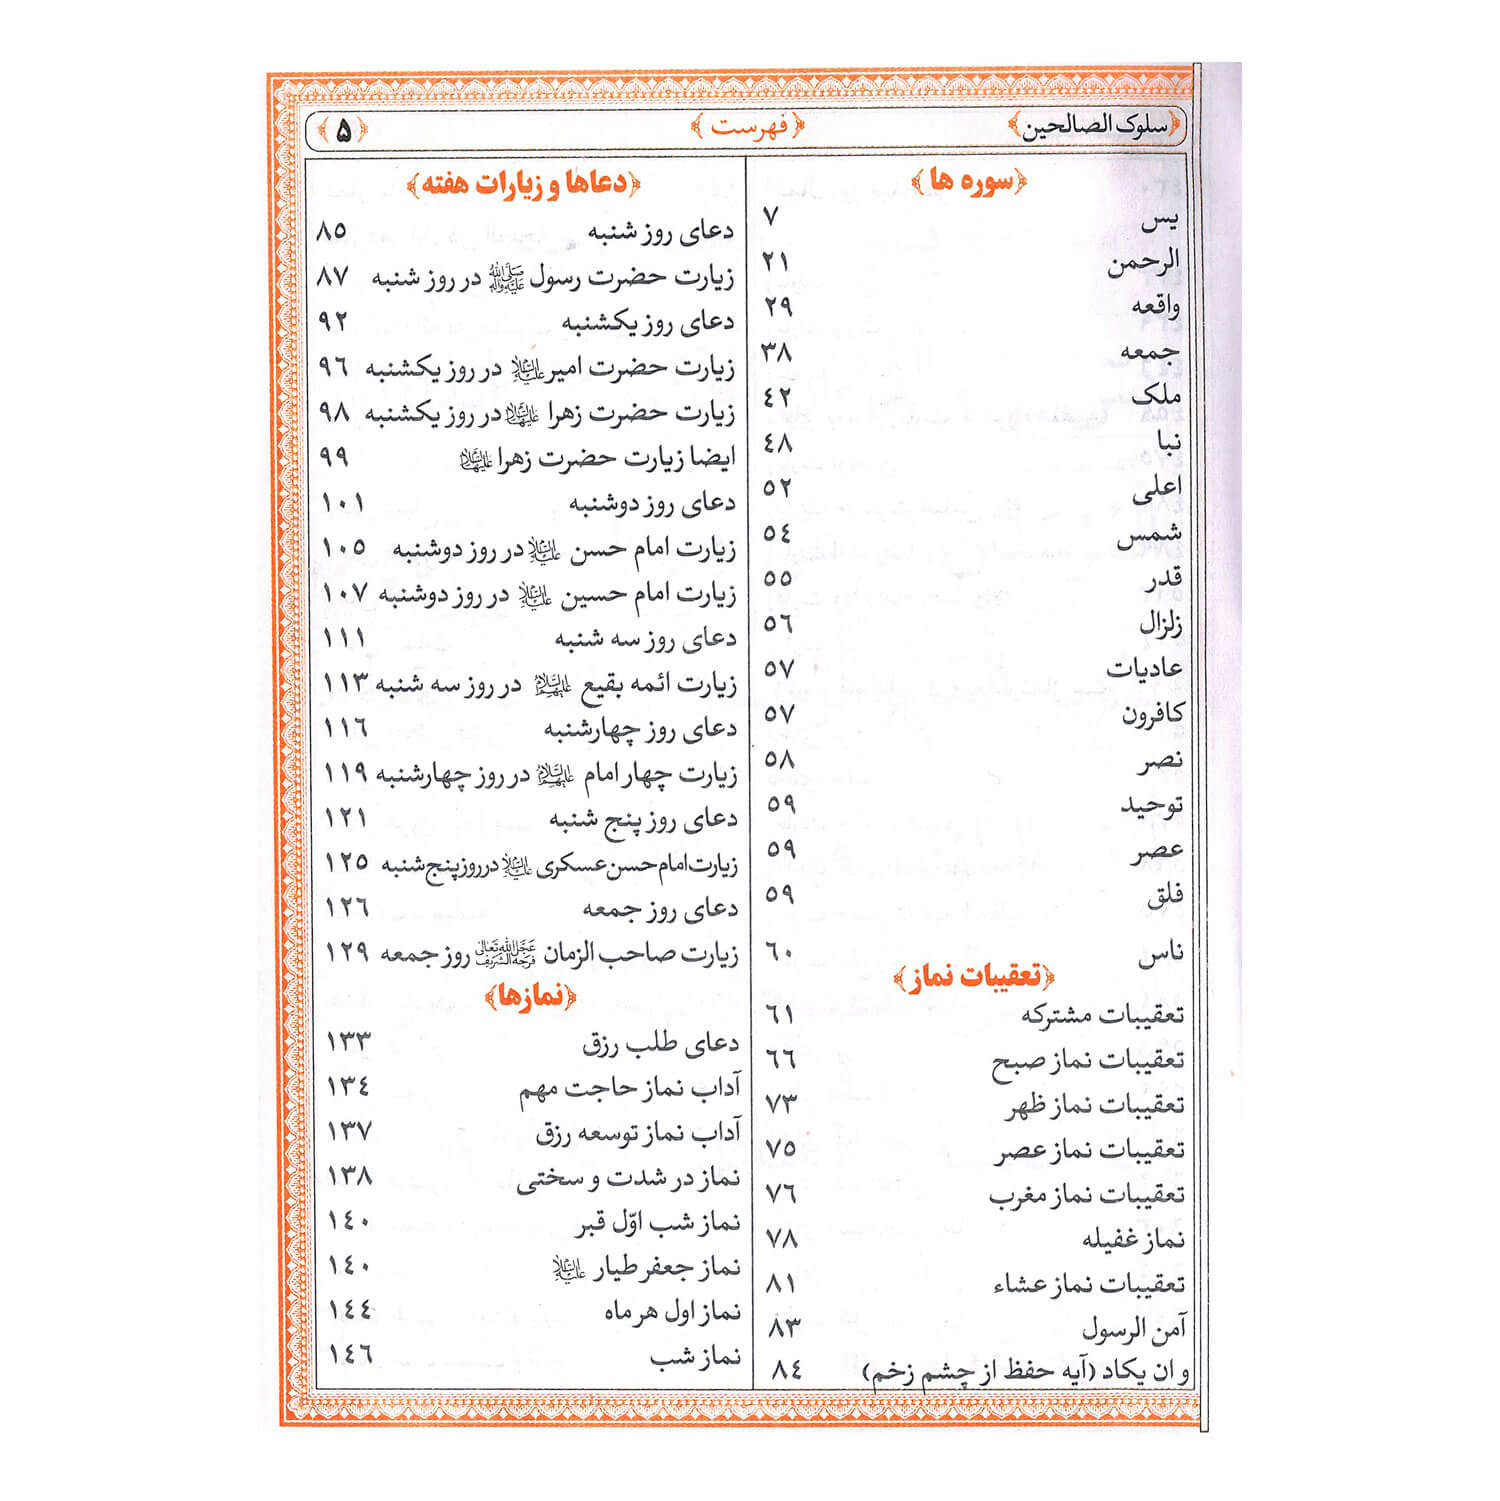 ﴿سلوک الصالحین﴾ ﴿فهرست﴾ ﴿۵﴾
﴿سوره ها﴾
یس ۷
الرحمن ۲۱
واقعه ۲۹
جمعه ۳۸
ملک ٤۲
نبا ٤۸
اعلی ۵۲
شمس ۵٤
قدر ۵۵
زلزال ۵٦
عادیات ۵۷
کافرون ۵۷
نصر ۵۸
توحید ۵۹
عصر ۵۹
فلق ۵۹
ناس ٦۰
﴿تعقیبات نماز﴾
تعقیبات مشترکه ٦۱
تعقیبات نماز صبح ٦٦
تعقیبات نماز ظهر ۷۳
تعقیبات نماز عصر ۷۵
تعقیبات نماز مغرب ۷٦
نماز غفیله ۷۸
تعقیبات نماز عشاء ۸۱
آمن الرسول ۸۳
و ان یکاد (آیه حفظ از چشم زخم) ۸٤
﴿دعاها و زیارات هفته﴾
دعای روز شنبه ۸۵
زیارت حضرت رسول ﷺ در روز شنبه ۸۷
دعای روز یکشنبه ۹۲
زیارت حضرت امیر علیه السلام در روز یکشنبه ۹٦
زیارت حضرت زهرا علیها السلام در روز یکشنبه ۹۸
ایضا زیارت حضرت زهرا علیها السلام ۹۹
دعای روز دوشنبه ۱۰۱
زیارت امام حسن علیه السلام در روز دوشنبه ۱۰۵
زیارت امام حسین علیه السلام در روز دوشنبه ۱۰۷
دعای روز سه شنبه ۱۱۱
زیارت ائمه بقیع علیهم السلام در روز سه شنبه ۱۱۳
دعای روز چهارشنبه ۱۱٦
زیارت چهار امام علیهم السلام در روز چهارشنبه ۱۱۹
دعای روز پنج شنبه ۱۲۱
زیارت امام حسن عسکری علیه السلام در روز پنج شنبه ۱۲۵
دعای روز جمعه ۱۲٦
زیارت صاحب الزمان عَجَّلَ اللهُ تَعالی فَرَجَهُ الشَّریف روز جمعه ۱۲۹
﴿نمازها﴾
دعای طلب رزق ۱۳۳
آداب نماز حاجت مهم ۱۳٤
آداب نماز توسعه رزق ۱۳۷
نماز در شدت و سختی ۱۳۸
نماز شب اوّل قبر ۱٤۰
نماز جعفر طیار علیه السلام ۱٤۰
نماز اول هر ماه ۱٤٤
نماز شب ۱٤٦